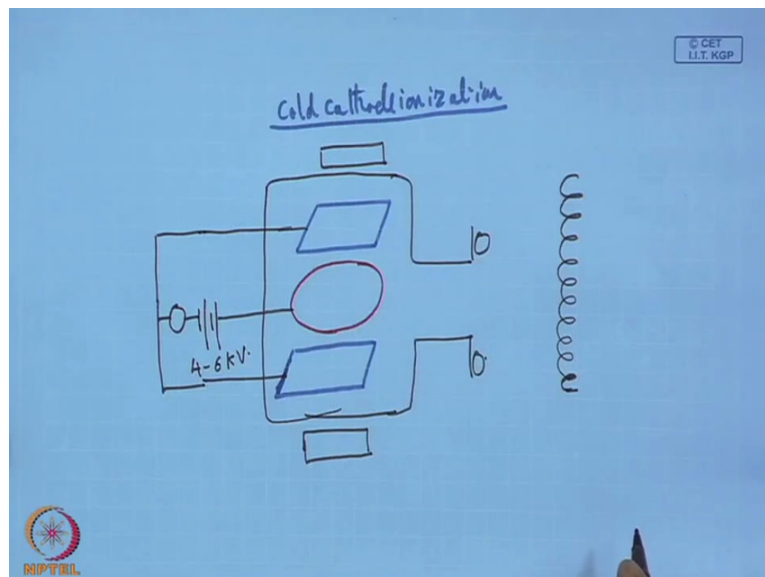 © CET
I.I.T. KGP
Cold Cathode ionization
4-6 KV.
NPTEL